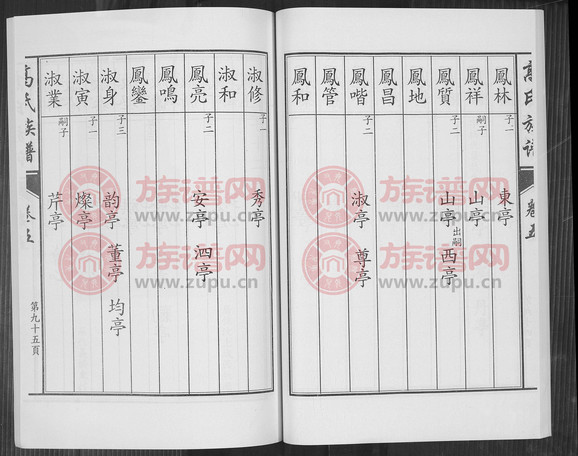 高氏族谱
卷五
鳳林 子一 東亭
鳳祥 嗣子 山亭
鳳質 子二 山亭 出嗣 西亭
鳳地
鳳昌
鳳喈 子二 淑亭 尊亭
鳳管
鳳和
淑修 子一 秀亭
淑和
鳳亮 子二 安亭 泗亭
鳳鳴
鳳鑾
淑身 子三 韵亭 董亭 均亭
淑寅 子一 燦亭
淑業 嗣子 芹亭
高氏族譜
卷五
第九十五頁
族谱网
www.zupu.cn
族谱网
www.zupu.cn
族谱网
www.zupu.cn
族谱网
www.zupu.cn